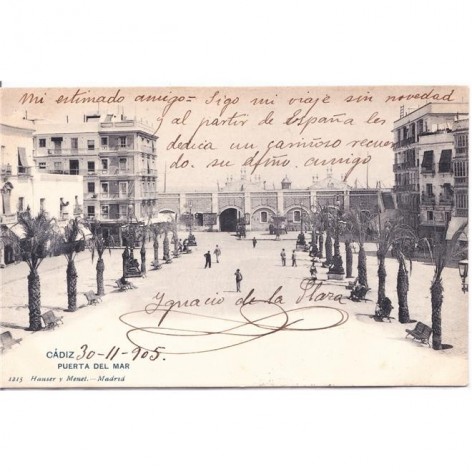 Mi estimado amigo = Sigo mi viaje sin novedad
y al partir de España les
dedica un cariñoso recuer
do. su afmo. amigo
Ignacio de la Plaza
CÁDIZ 30-11-905.
PUERTA DEL MAR
1215 Hauser y Menet.—Madrid